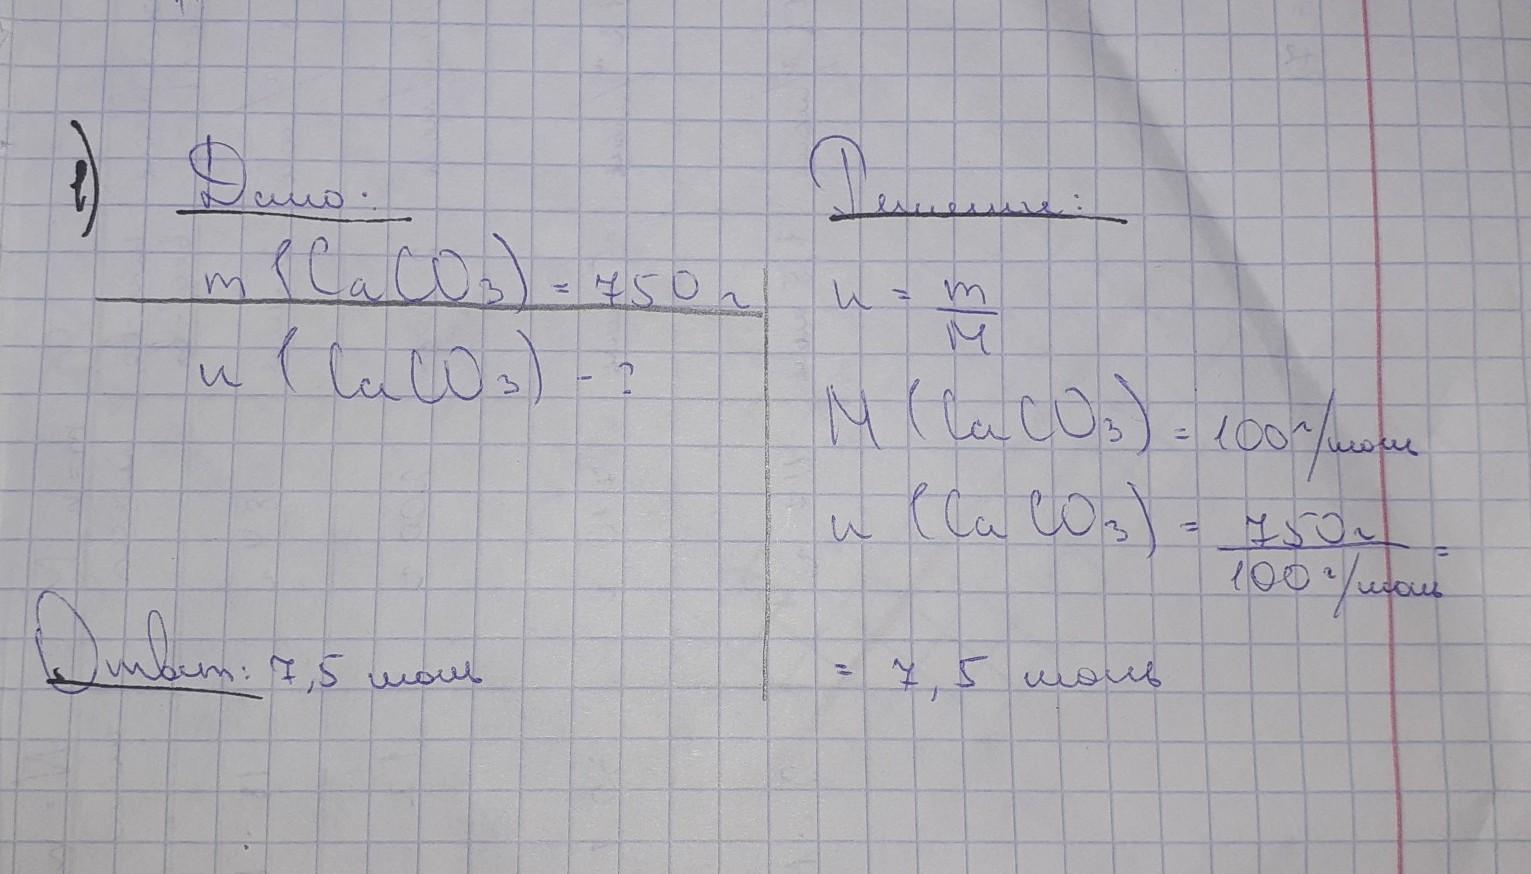 1) Дано:
m (CaCO3) = 750 г
n (CaCO3) - ?
Решение:
n = m/M
M (CaCO3) = 100 г/моль
n (CaCO3) = 750 г / 100 г/моль =
= 7,5 моль
Ответ: 7,5 моль